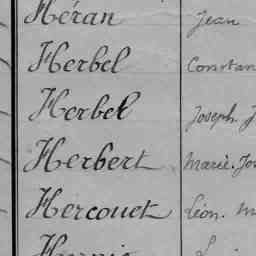 Héran Jean
Herbel Constan
Herbel Joseph. J
Herbert Marie. Jo
Hercouet Léon. M